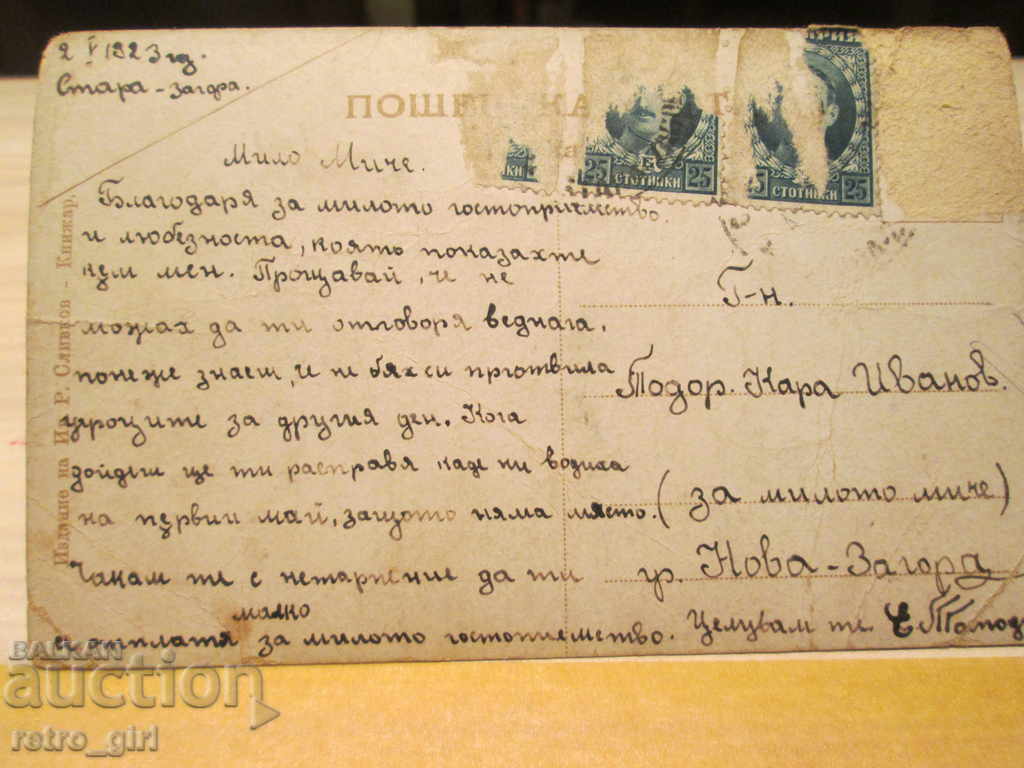 2 V 1923 год.
Стара - Загора.
ПОШЕ КА
РИЯ
25 СТОТИНКИ 25
СТОТИНКИ 25
Мило Миче.
Благодаря за милото гостоприемство
и любезноста, която показахте
към мен. Прощавай, че не
можах да ти отговоря веднага,
понеже знаеш, и не бях си приготвила
уроците за другия ден. Кога
дойдеш ще ти расправя каде ни водиха
на първий май, защото няма место.
Чакам те с нетърпение да ти
малко
отплатя за милото гостоприемство. Целувам те
Г-н.
Тодор. Кара Иванов.
(за милото миче)
гр. Нова-Загора
Издание на Ив. Р. Сливков - Книжар,
BALKAN
auction
retro_girl